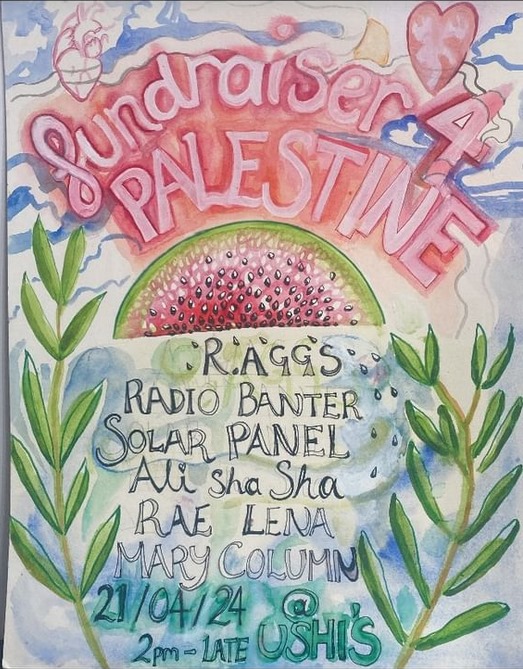 fundraiser 4
PALESTINE
R.AGGS
RADIO BANTER
SOLAR PANEL
Ali sha Sha
RAE LENA
MARY COLUMN
21/04/24 @
2pm - LATE USHI'S